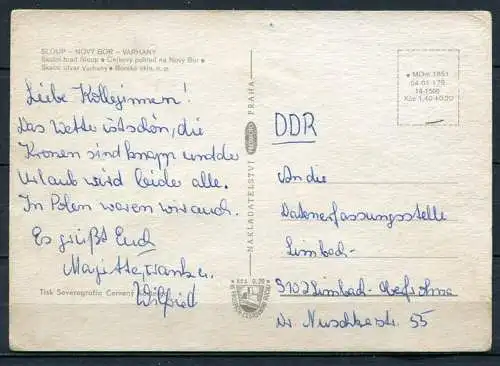 SLOUP – NOVÝ BOR – VARHANY
Skalní hrad Sloup • Celkový pohled na Nový Bor •
Skalní útvar Varhany • Borské sklo, n. p.
Liebe Kolleginnen!
Das Wetter ist schön, die
Kronen sind knapp und der
Urlaub wird leider alle.
In Polen waren wir auch.
Es grüßt Euch
Magitta, Frank u.
Wilfried
Tisk Severografia Červený
NAKLADATELSTVÍ PRESSFOTO PRAHA
Kčs 0,20
04-01 179
18-1500
Kčs 1,40+0,20
DDR
An die
Datenerfassungsstelle
Limbach-
9102 Limbach-Oberfrohna
Dr. Nuschkestr. 55